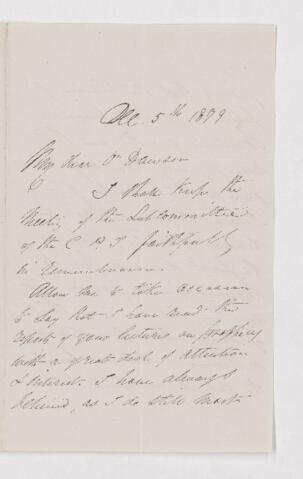 Dec. 5th 1879
My dear Dr Dawson
I shall keep the
Meeting of the Subcommittee
of the C P I faithfully
in remembrance.
Allow me to take occasion
to say that I have read the
reports of your lectures on prophecy
with a great deal of attention
& interest. I have always
believed, as I do still most